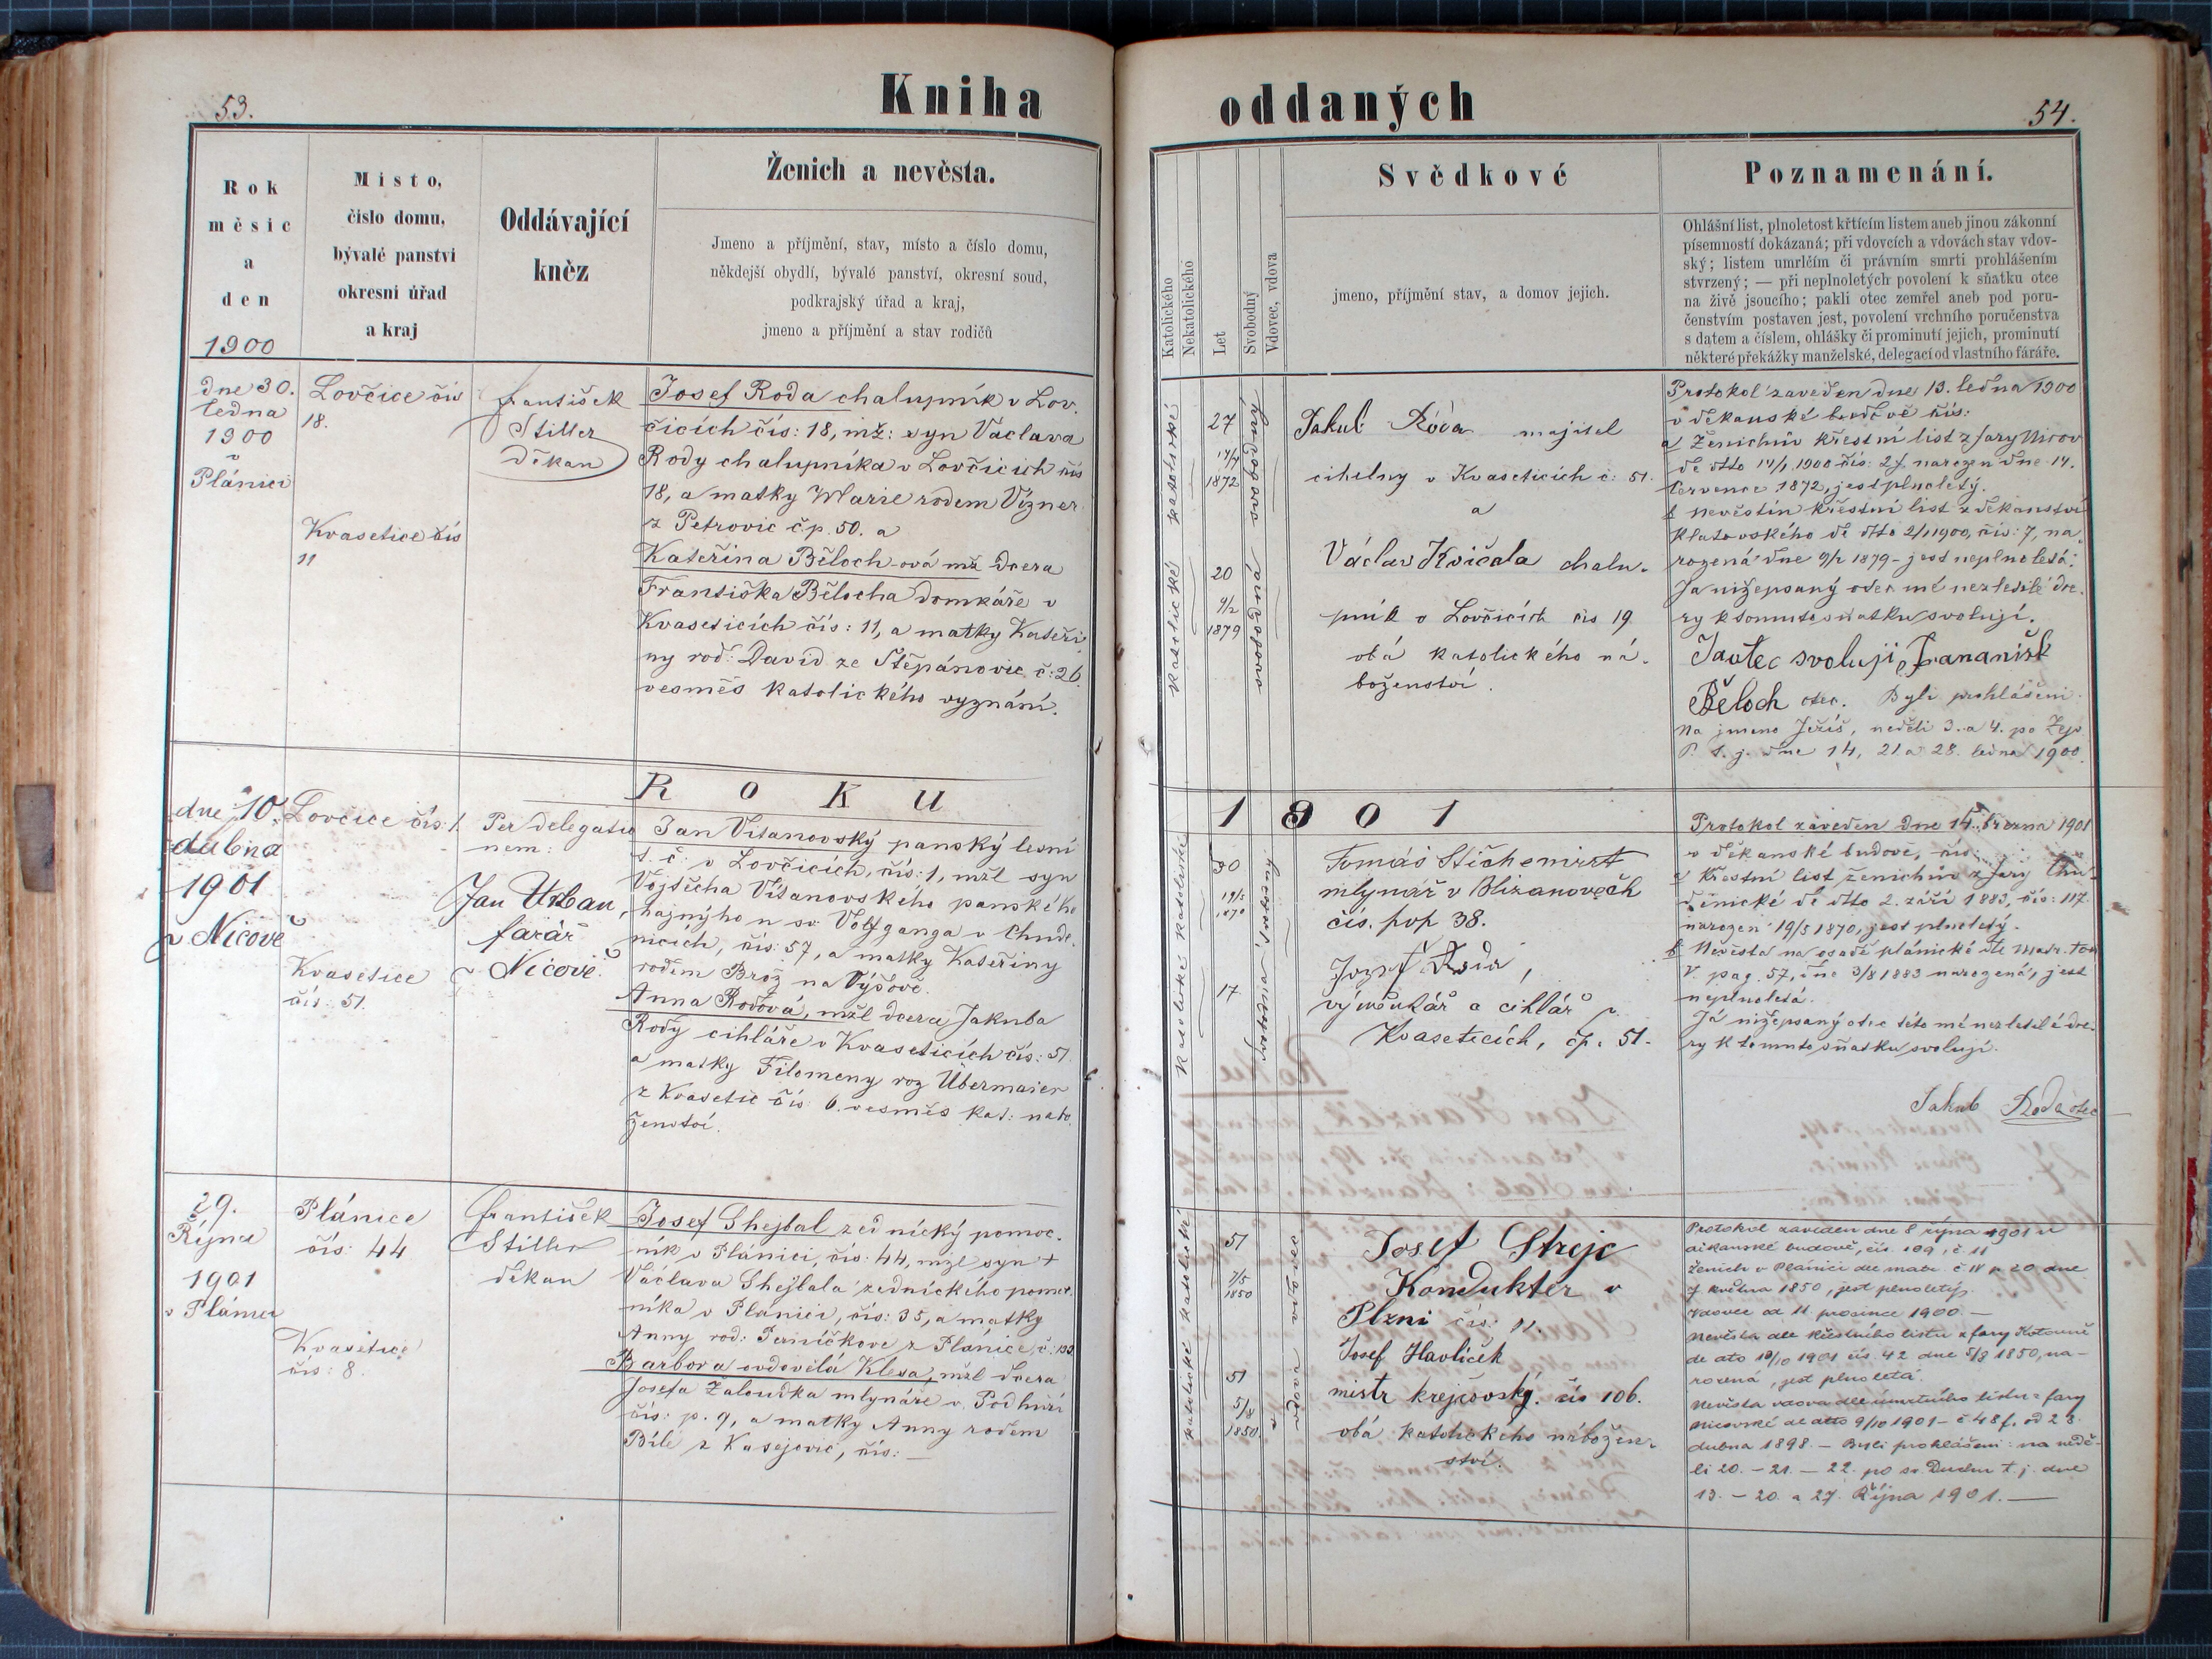 53.
Kniha
Rok
měsíc
a
den
1900
Místo,
číslo domu,
bývalé panství
okresní úřad
a kraj
Oddávající
kněz
Ženich a nevěsta.
Jmeno a příjmění, stav, místo a číslo domu,
někdejší obydlí, bývalé panství, okresní soud,
podkrajský úřad a kraj,
jmeno a příjmění a stav rodičů
dne 30.
ledna
1900
v
Plánici
Lovčice čís
18.
Kvasetice čís
11
František
Stiller
děkan
Josef Roda chalupník v Lov.
čicích čís: 18, mž: syn Václava
Rody chalupníka v Lovčicích čís
18, a matky Marie rodem Vízner
z Petrovic č.p. 50. a
Kateřina Běloch-ová mž dcera
Františka Bělocha domkáře v
Kvaseticích čís: 11, a matky Kateři
ny rod: David ze Štěpánovic č: 26.
vesměs katolického vyznání.
ROKU
dne 10.
dubna
1901
v Nicově
Lovčice čís: 1.
Kvasetice
čís: 51.
Per delegatio
nem:
Jan Urban,
farář
v Nicově.
Jan Vítanovský panský lesní
t. č. v Lovčicích, čís: 1, mžl syn
Vojtěcha Vítanovského panského
hajného u sv. Volfganga v Chude.
nicích, čís: 57, a matky Kateřiny
rodem Brož na Výšově.
Anna Rodová, mžl dcera Jakuba
Rody cihláře v Kvaseticích čís: 51.
a matky Filomeny roz Übermaier
z Kvasetic čís: 6. vesměs kat: nabo
ženství.
29.
Října
1901
v Plánici
Plánice
čís: 44
Kvasetice
čís: 8.
František
Stiller
děkan
Josef Shejbal zednický pomoc.
ník v Plánici, čís: 44, mžl syn +
Václava Shejbala zednického pomoc.
níka v Plánici, čís: 35, a matky
Anny rod: Perničkove z Plánice, č:
Barbora ovdovělá Klesa, mžl dcera
Josefa Žaloudka mlynáře v Podhuří
čís: p. 9, a matky Anny rodem
Bílé z Kasejovic, čís: —
oddaných
54.
Katolického
Nekatolického
Let
Svobodný
Vdovec, vdova
Svědkové
jmeno, příjmění stav, a domov jejich.
Poznamenání.
Ohlášní list, plnoletost křtícím listem aneb jinou zákonní
písemností dokázaná; při vdovcích a vdovách stav vdov-
ský; listem umrlčím či právním smrti prohlášením
stvrzený; — při neplnoletých povolení k sňatku otce
na živě jsoucího; pakli otec zemřel aneb pod poru-
čenstvím postaven jest, povolení vrchního poručenstva
s datem a číslem, ohlášky či prominutí jejich, prominutí
některé překážky manželské, delegací od vlastního faráře.
katolické
27
14/7
1872
svobodný
katolické
20
9/2
1879
svobodná
Jakub Roda majitel
cihelny v Kvaseticích č: 51.
a
Václav Kvičala chalu.
pník v Lovčicích čís 19
obá katolického ná.
boženství.
Protokol zaveden dne 13. ledna 1900
v děkanské budově čís:
a Ženichův křestní list z fary Nicov
de dtto 14/1 1900 čís: 27. narozen dne 14.
července 1872, jest plnoletý.
b Nevěstin křestní list z děkanství
Klatovského de dtto 2/1 1900, čís: 7, na
rozená dne 9/2 1879 - jest neplnoletá:
Ja nížepsaný otec mé nezletilé dce.
ry k tomuto sňatku svoluji.
Ja otec svoluji Frananišk
Běloch otec. Byli prohlášeni
na jmeno Ježíš, neděli 3. a 4. po Zjev
P. t. j. dne 14, 21. a 28. ledna 1900.
1901
katolické
30
19/5
1870
katolické
17
Tomáš
mlynář v Blizanovech
čís. pop 38.
Jozef Roda,
výměnkář a cihlář v
Kvaseticích, čp. 51.
Protokol zaveden dne 14. března 1901
v děkanské budově, čís:
a Křestní list ženichův z fary Chu-
děnické de dtto 2. září 1883, čís: 117.
narozen 19/5 1870, jest plnoletý.
b Nevěsta na osadě plánické dle matr. tom
V. pag. 57, dne 3/8 1883 narozená, jest
neplnoletá.
Já nížepsaný otec této mé nezletilé dce.
ry k tomuto sňatku svoluji.
Jakub Roda otec
katolické
51
7/5
1850
vdovec
katolické
51
5/8
1850.
vdova
Josef Strejc
Kondukter v
Plzni čís: 11.
Josef Havlíček
mistr krejčovský. čís 106.
obá katolického nábožen-
ství.
Protokol zaveden dne 8 října 1901 v
děkanské budově, čís. 109, č. 11
Ženich v Plánici dle matr. č IV p 20 dne
7 května 1850, jest plnoletý.
vdovec od 11. prosince 1900. —
Nevěsta dle křestního listu z fary Kotouně
de dto 10/10 1901 čís. 42 dne 5/8 1850, na-
rozená, jest plnoletá.
Nevěsta vdova dle úmrtního listu z fary
Nicovské de dtto 9/10 1901 - č 48 f. od 23.
dubna 1898. — Byli prohlášeni: na nedě-
li 20. - 21. - 22. po sv. Duchu t. j. dne
13. - 20. a 27. Října 1901. —